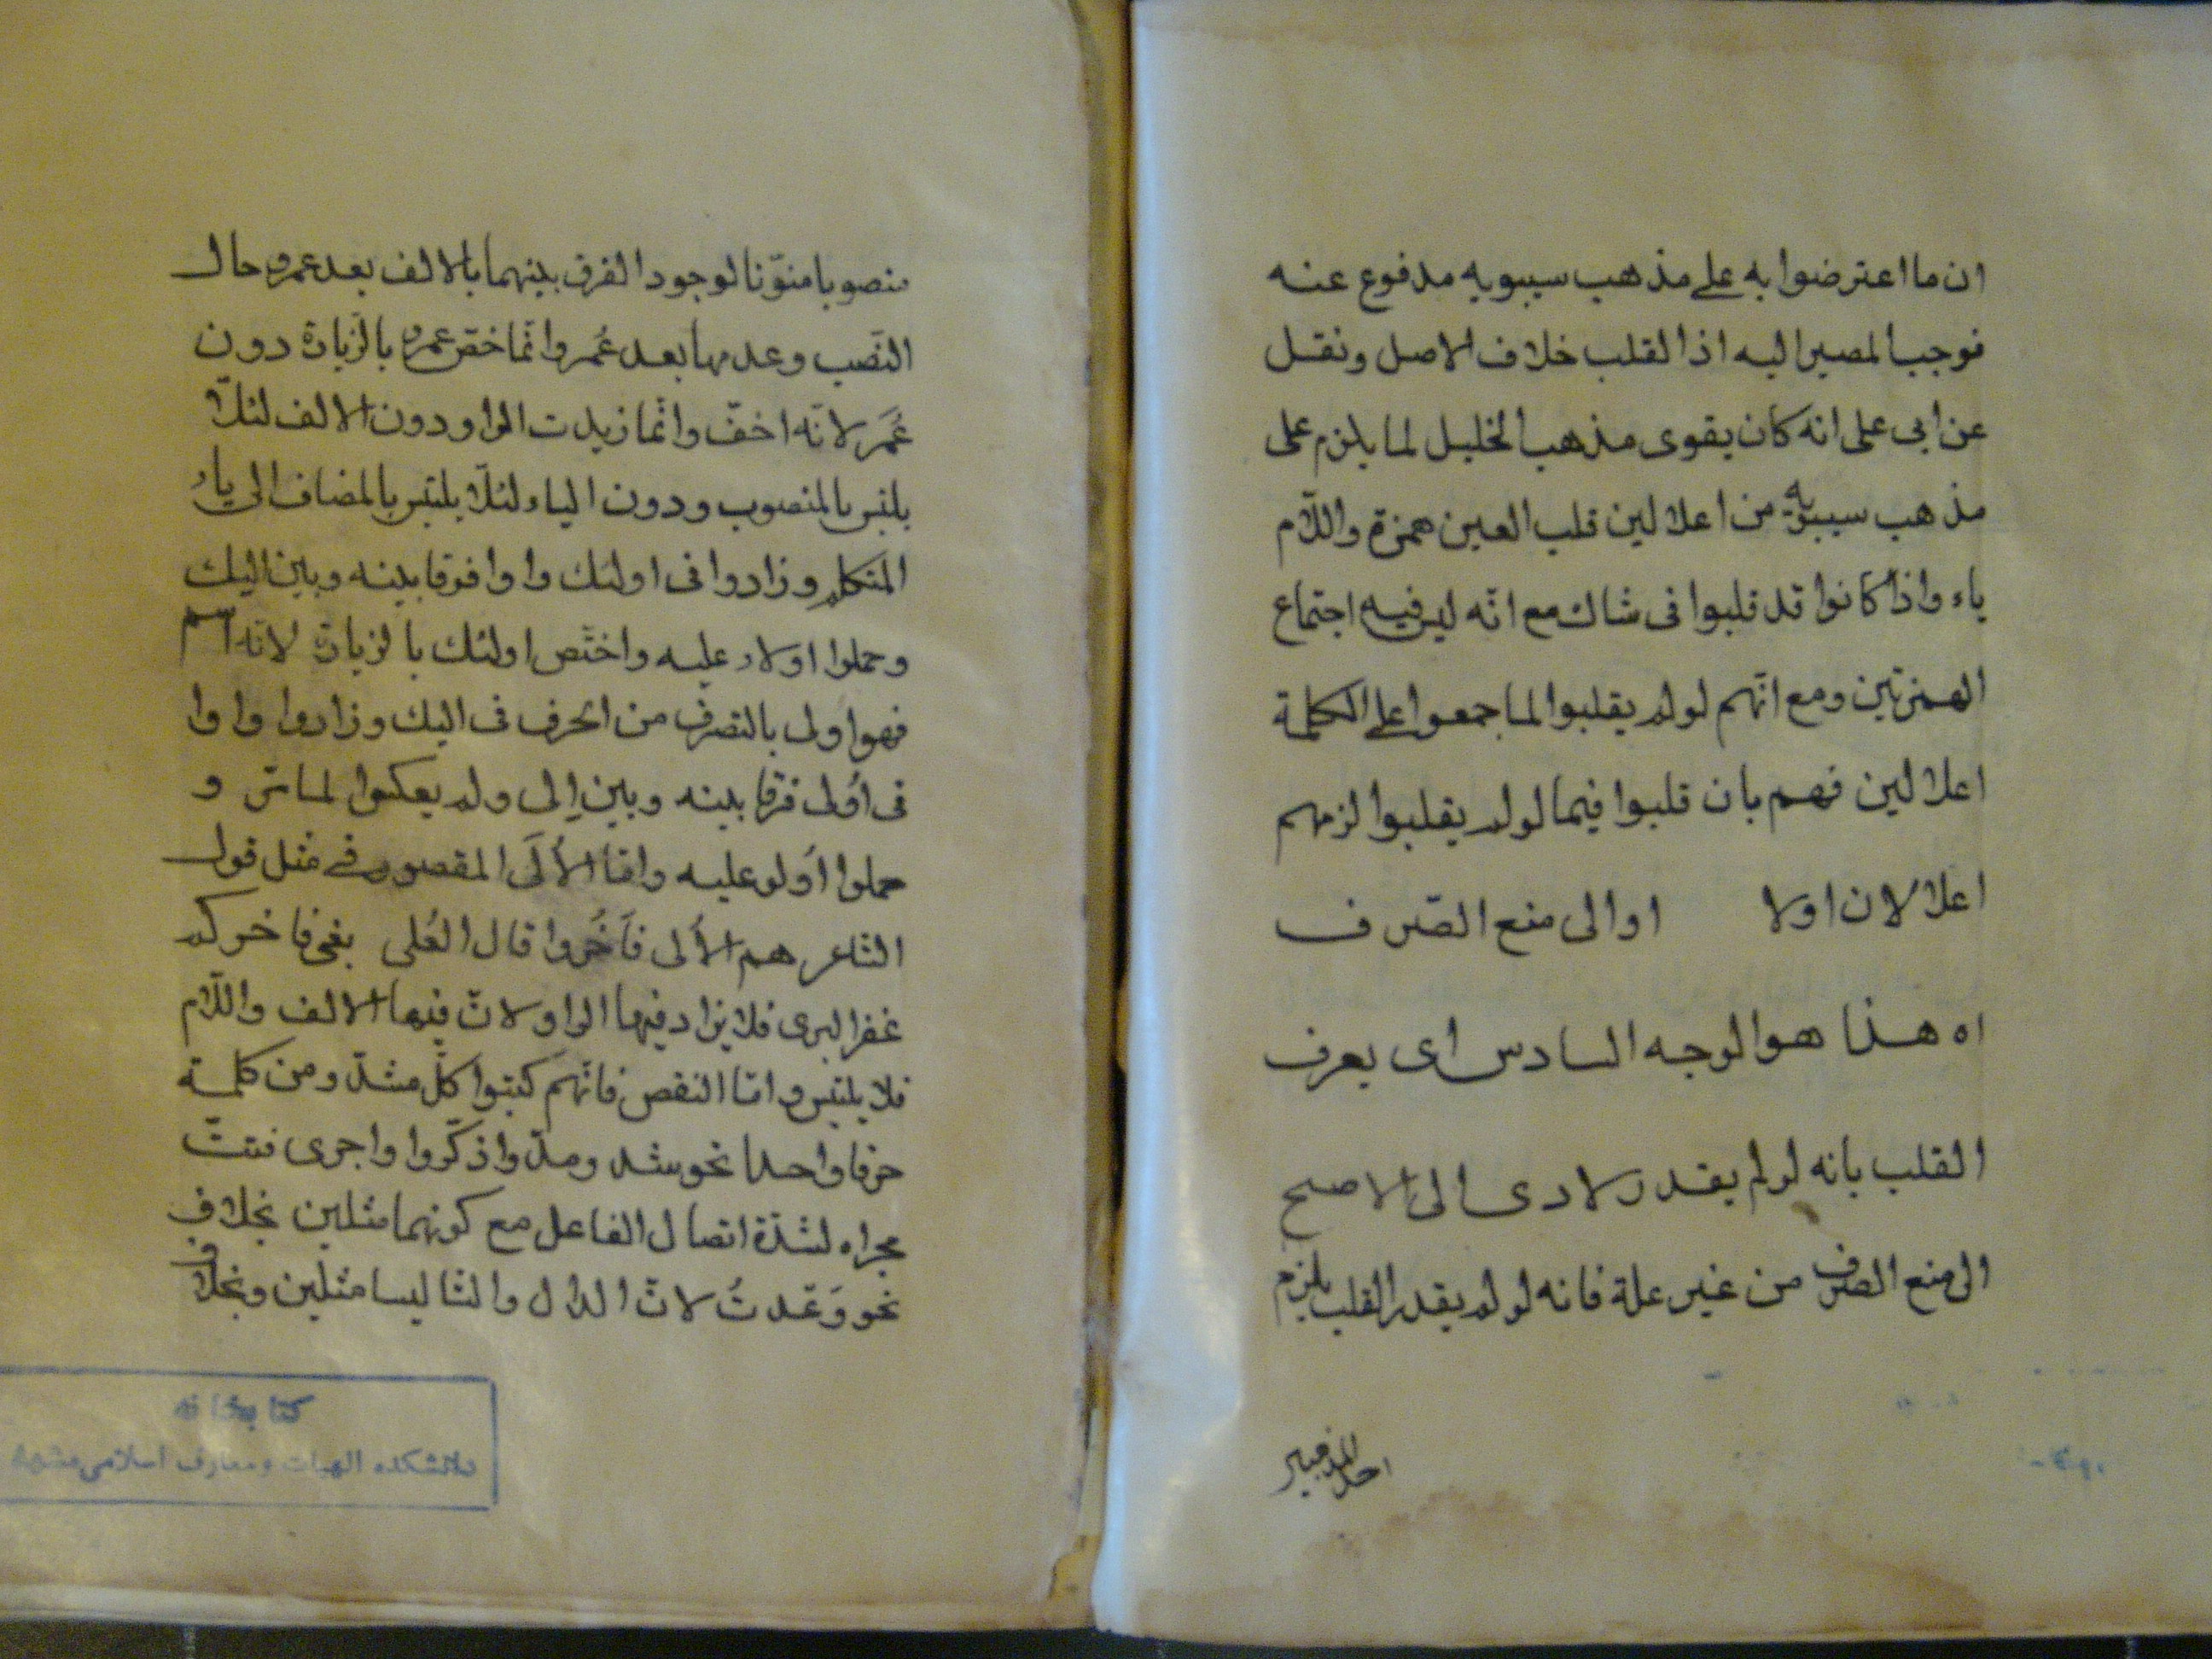 ان ما اعترضوا به على مذهب سيبويه مدفوع عنه
فوجب المصير اليه اذ القلب خلاف الاصل ونقل
عن ابى على انه كان يقوى مذهب الخليل لما يلزم على
مذهب سيبويه من اعلالين قلب العين همزة واللّام
ياء واذا كانوا قد قلبوا فى شاك مع انّه ليس فيه اجتماع
الهمزتين ومع انّهم لو لم يقلبوا لما جمعوا على الكلمة
اعلالين فهم بان قلبوا فيما لو لم يقلبوا لزمهم
اعلالان اولا او الى منع الصّرف
اه هذا هو الوجه السادس اى يعرف
القلب بانه لو لم يقدر لادى الى الاصح
الى منع الصرف من غير علة فانه لو لم يقدر القلب يلزم
منصوبا منوّنا لوجود الفرق بينهما بالالف بعد عمرو حال
النّصب وعدمها بعد عُمر وانّما خصّ عمرو بالزّيادة دون
عُمَر لانّه اخفّ وانّما زيدت الواو دون الالف لئلّا
يلتبس بالمنصوب ودون الياء لئلّا يلتبس بالمضاف الى ياء
المتكلم وزادوا فى اولئك واوا فرقا بينه وبين اليك
وحملوا اولاء عليه واختصّ اولئك بالزيادة لانّه اسم
فهو اولى بالتصرّف من الحرف فى اليك وزادوا واوا
فى اُولى فرقا بينه وبين اِلى ولم يعكسوا لما مرّ و
حملوا اُولو عليه وامّا الاُلَى المقصور فى مثل قول
الشاعر هم الاُلى فاَخَروا قال العُلى بفى فاخركم
عفر البرى فلا يزاد فيها الواو لانّ فيها الالف واللّام
فلا يلتبس وامّا النقص فانّهم كتبوا كلّ مشدّد من كلمة
حرفا واحدا نحو شد ومدّ واذكّروا واجرى فتتّ
مجراه لشدّة اتصال الفاعل مع كونهما مثلين بخلاف
نحو وَعَدتُ لانّ الدال والتا ليسا مثلين وبخلاف
كتابخانه
دانشكده الهيات ومعارف اسلامى مشهد